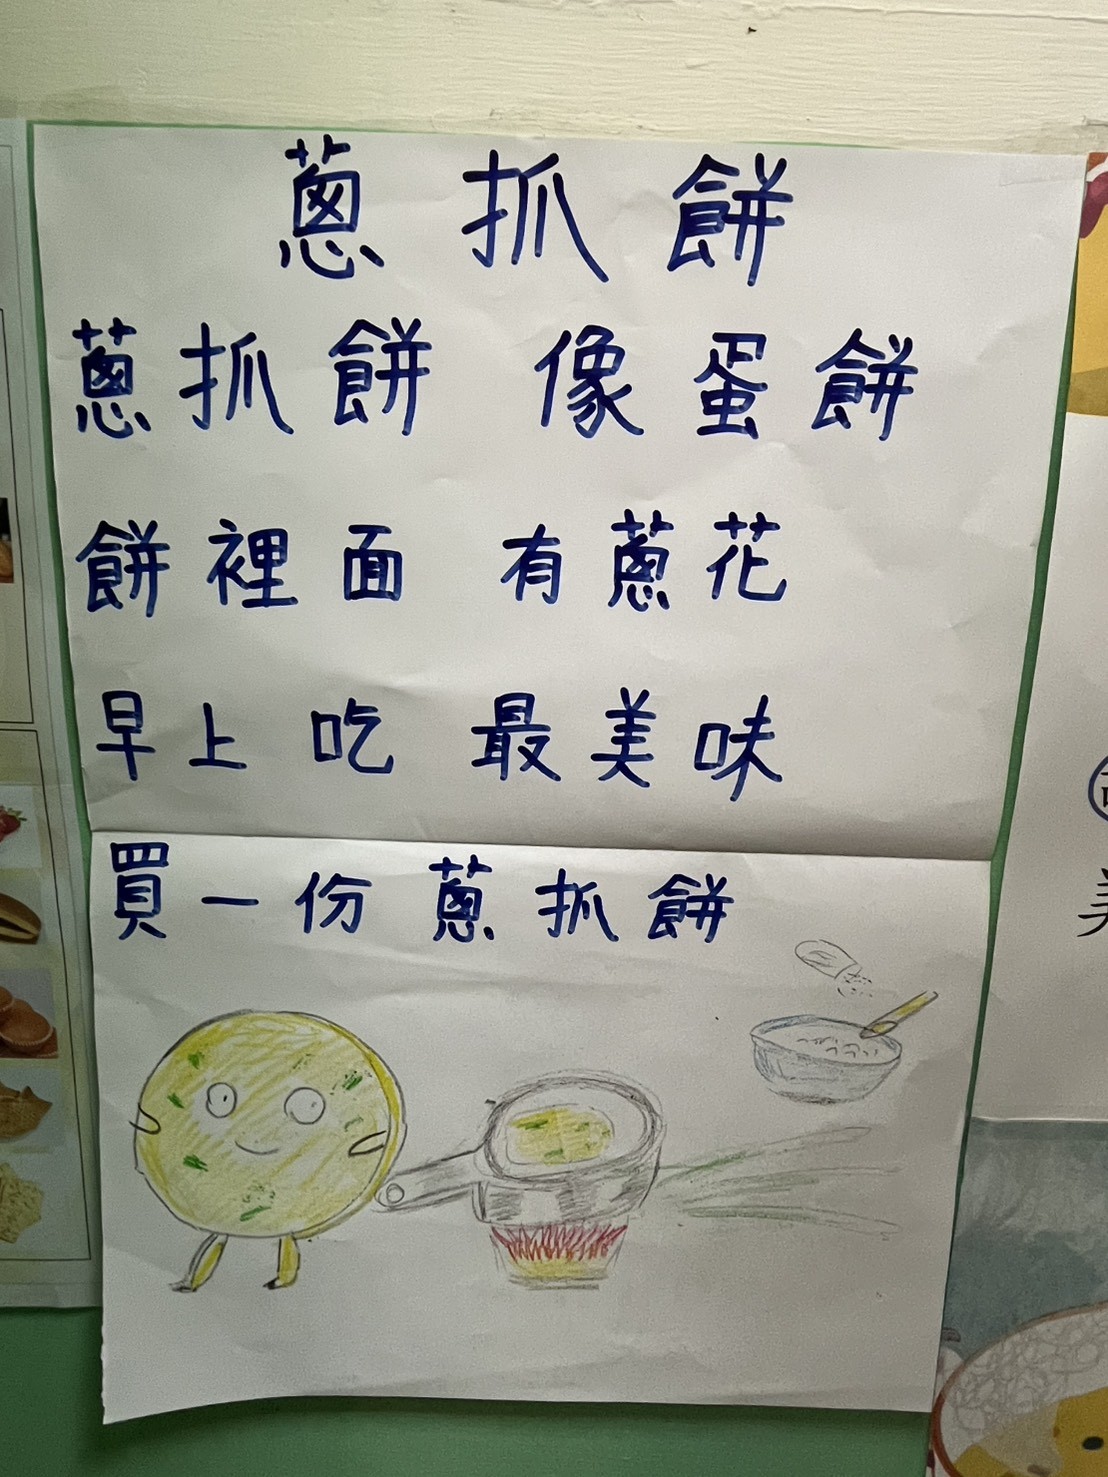 蔥 抓 餅
蔥抓餅 像蛋餅
餅裡面 有蔥花
早上吃 最美味
買一份 蔥抓餅